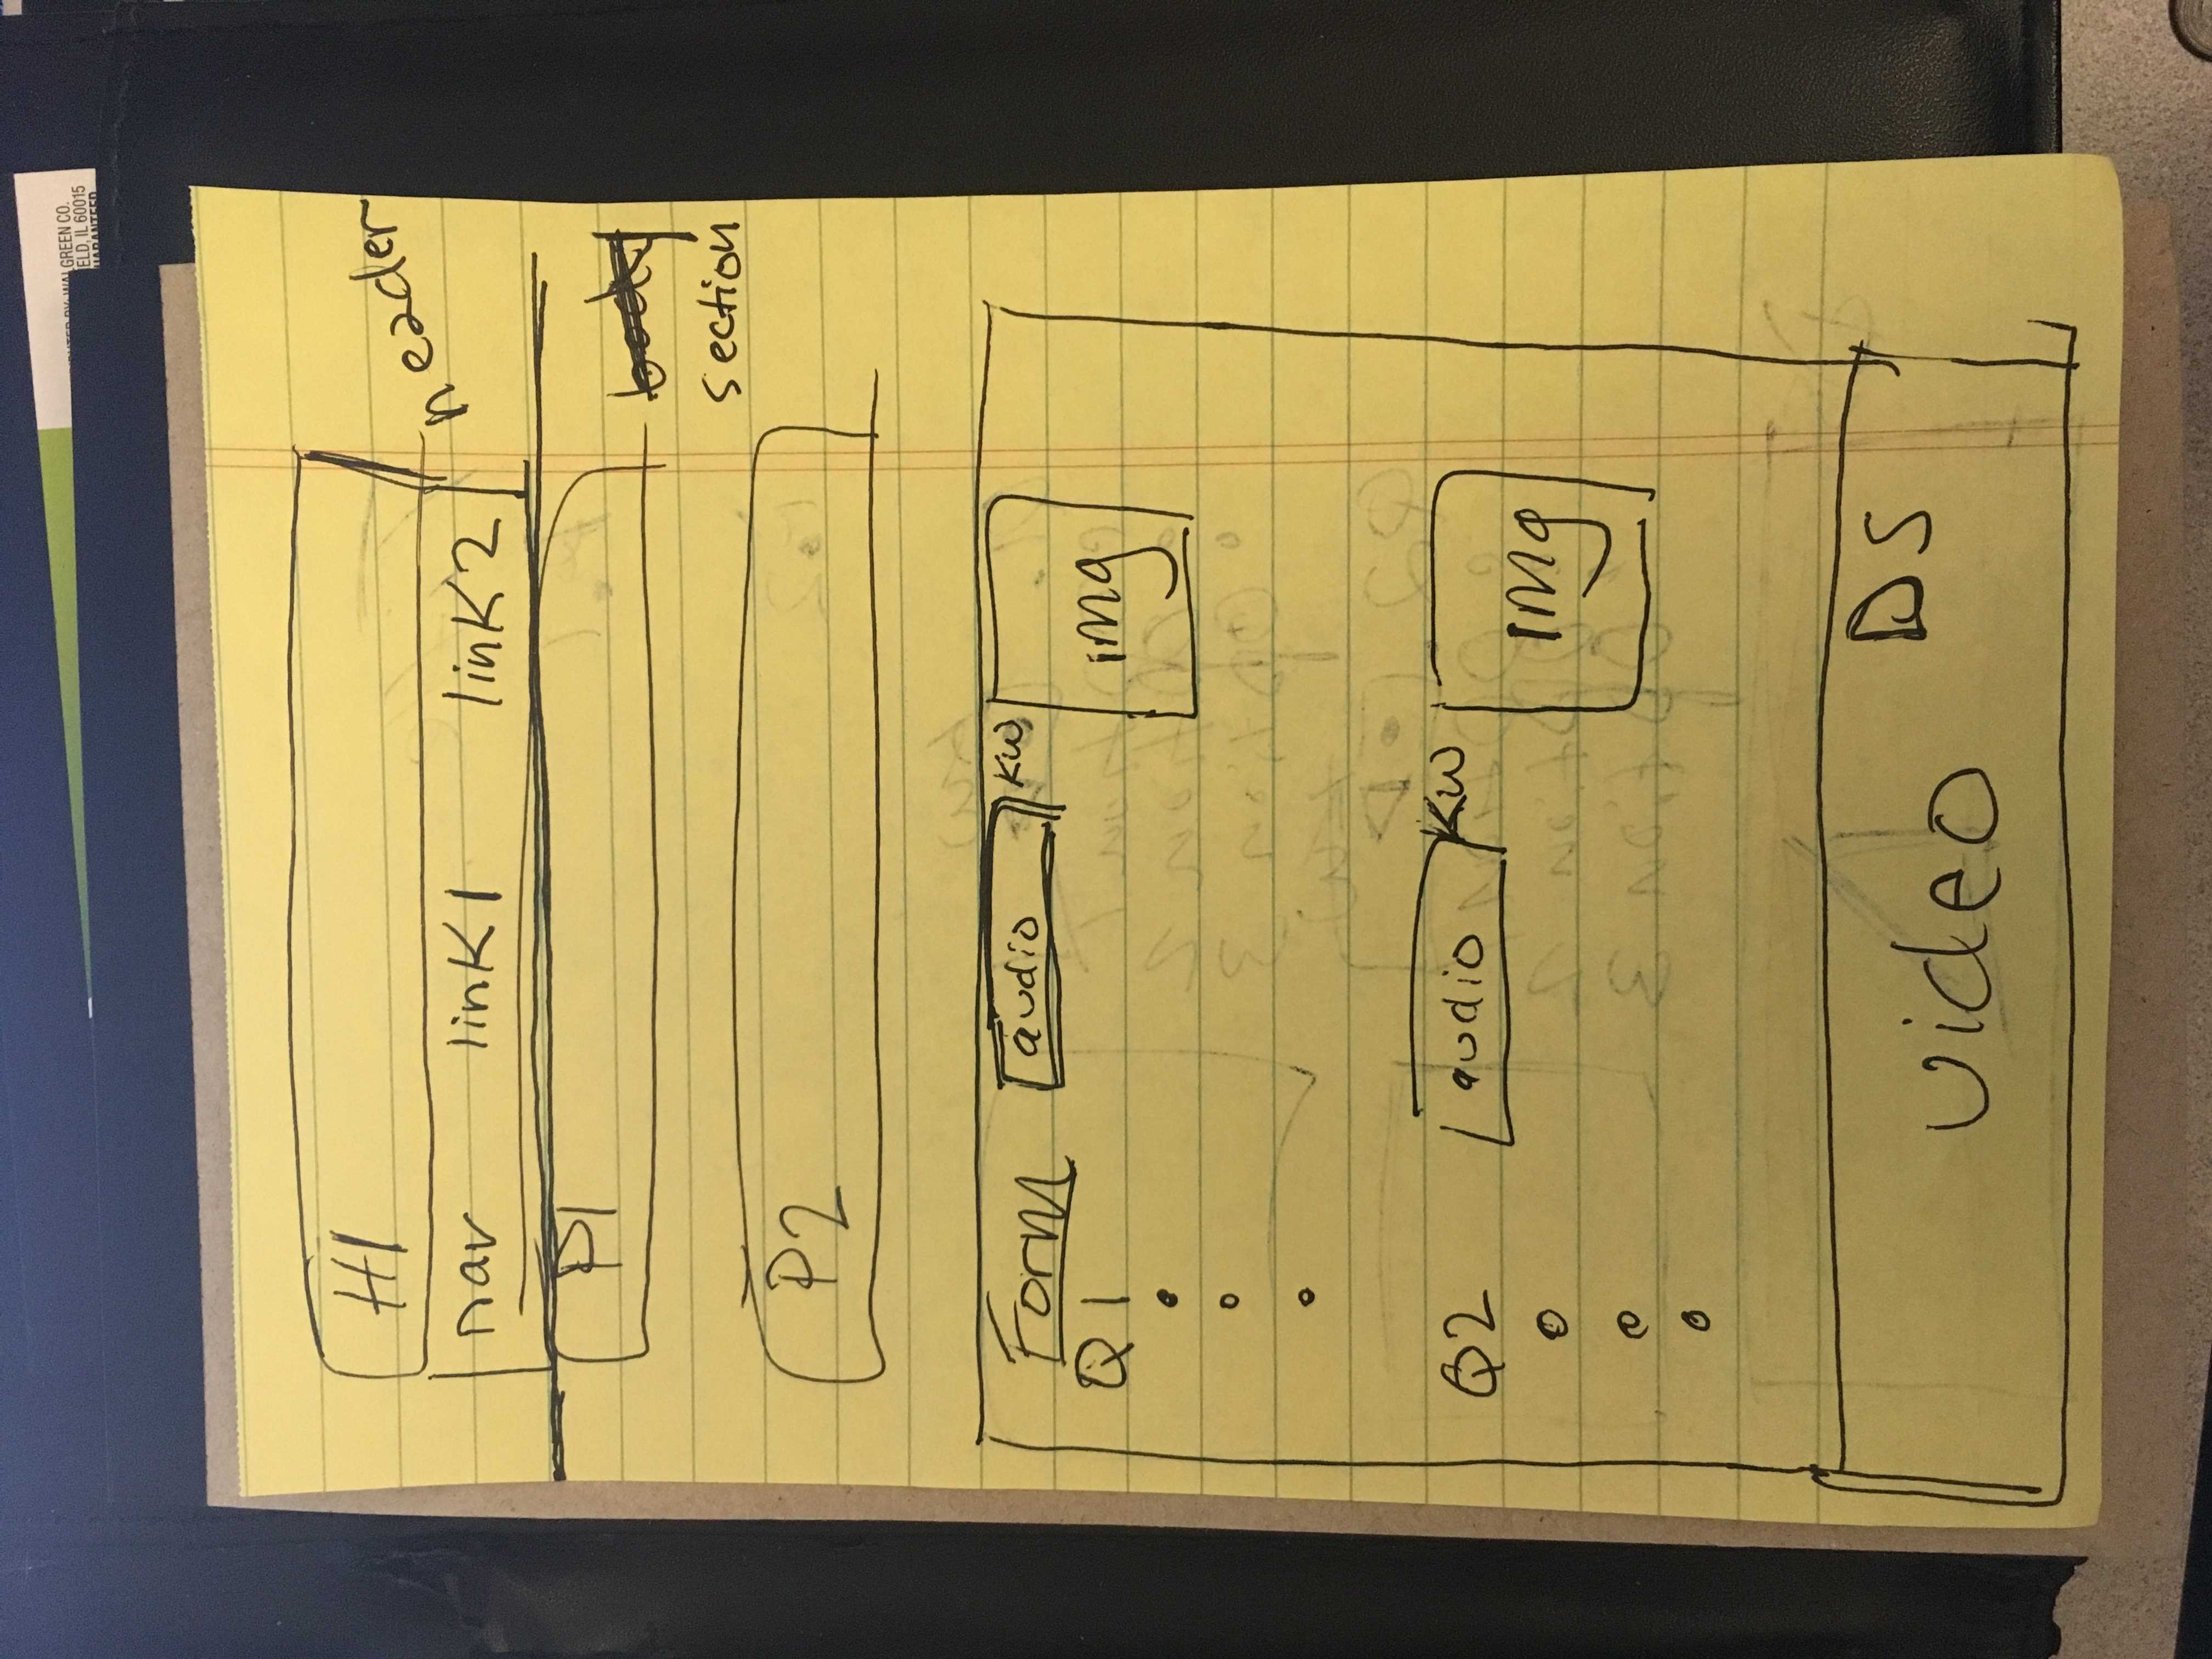 WALGREEN CO.
ELD, IL 60015
H1
header
nav link1 link2
P1
body
section
P2
Form audio KW
img
Q1
Q2 audio KW
img
DS
video